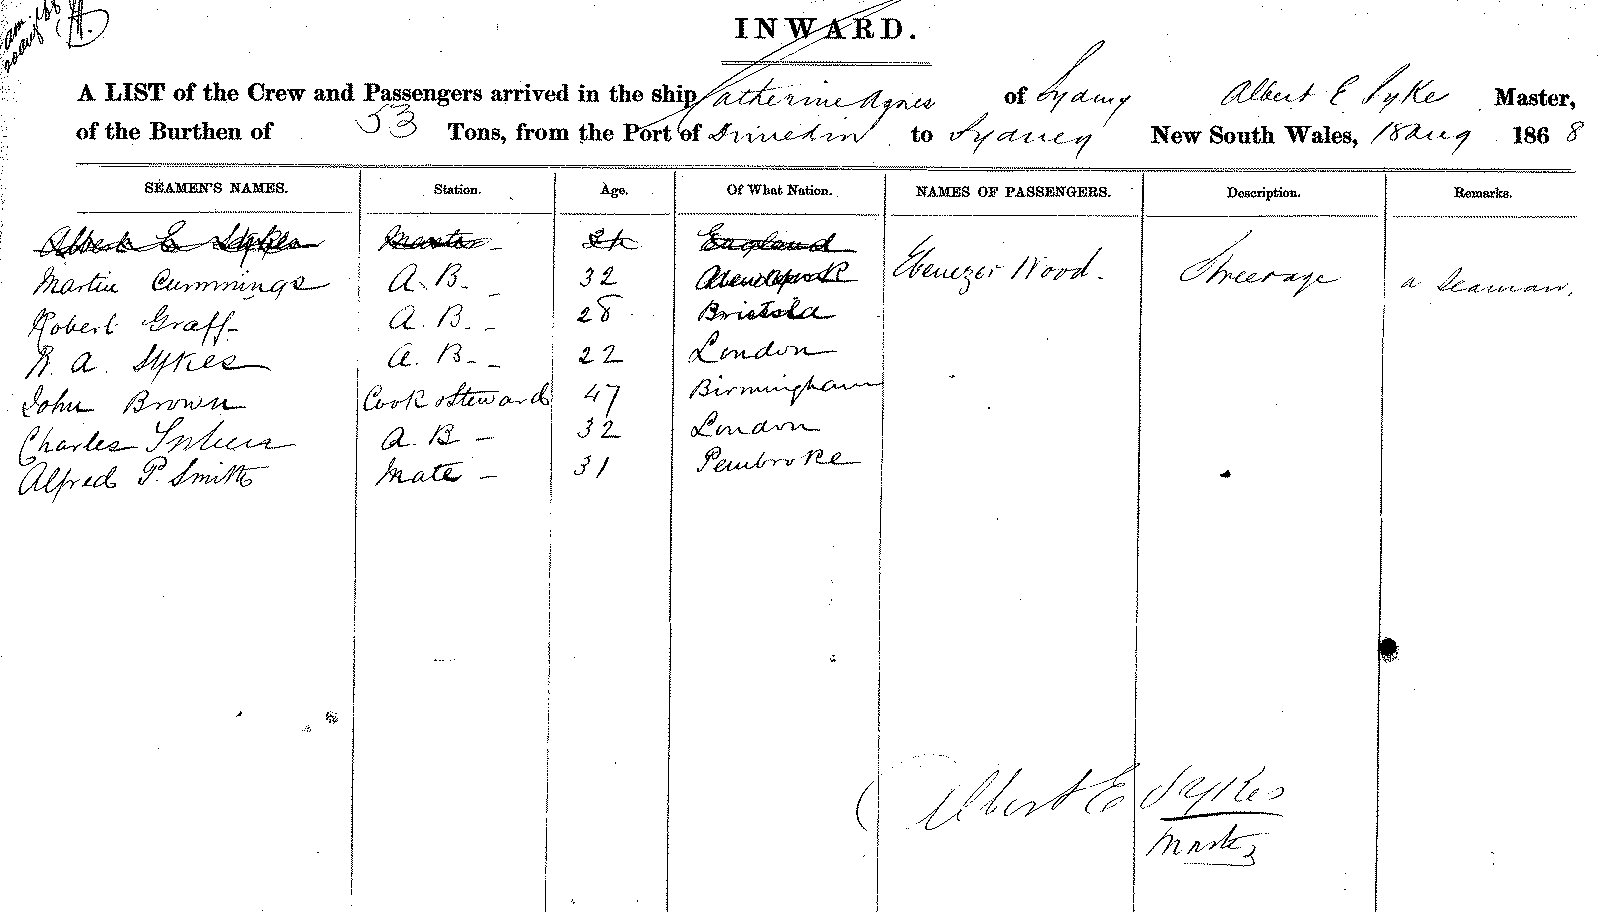 INWARD.
A LIST of the Crew and Passengers arrived in the ship Catherine Agnes of Sydney Albert E Syke Master,
of the Burthen of 53 Tons, from the Port of Dunedin to Sydney New South Wales, 18 Aug 1868
SEAMEN'S NAMES. Station. Age. Of What Nation. NAMES OF PASSENGERS. Description. Remarks.
Albert E Sykes Master - England
Martin Cummings A. B. - 32 Ebenezer Wood. Steerage a Seaman.
Robert Graff - A. B. - 28 Bristol
R. A. Sykes A. B. - 22 London
John Brown Cook & Steward 47 Birmingham
Charles A. B - 32 London
Alfred P. Smith Mate - 31 Pembroke
Albert E Sykes
Master